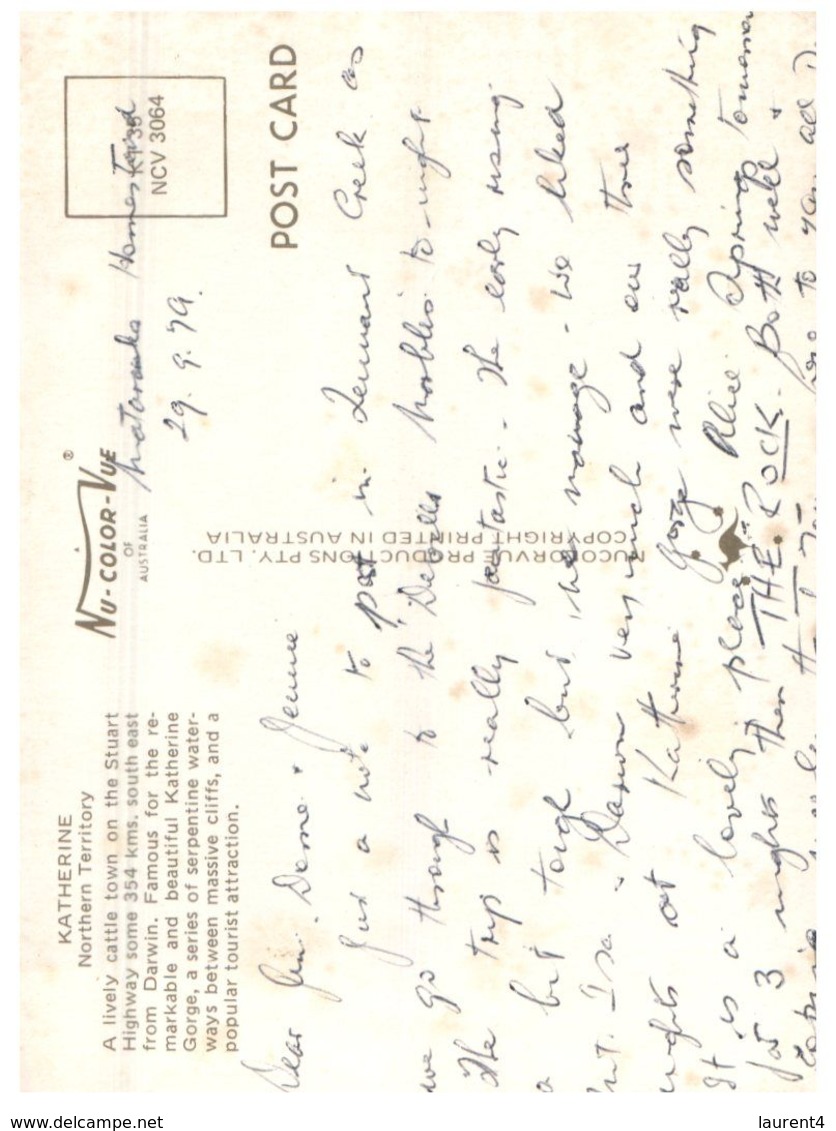 KATHERINE
Northern Territory
A lively cattle town on the Stuart
Highway some 354 kms. south east
from Darwin. Famous for the re-
markable and beautiful Katherine
Gorge, a series of serpentine water-
ways between massive cliffs, and a
popular tourist attraction.
NU-COLOR-VUE ®
OF
AUSTRALIA
KT 35
NCV 3064
POST CARD
NUCOLORVUE PRODUCTIONS PTY. LTD.
COPYRIGHT PRINTED IN AUSTRALIA
Mataranka Homestead
29.9.79.
Dear
Just a note to post in Tennant Creek as
we go through to the Devils Marbles to-night.
The trip is really fantastic - The early rising
a bit tough but we manage - We liked
Mt. Isa & Darwin very much and our three
nights at Katherine Gorge were really something
It is a lovely place. Alice Spring tomorrow
for 3 nights then THE ROCK. Both well &
to you all
www.delcampe.net
laurent4